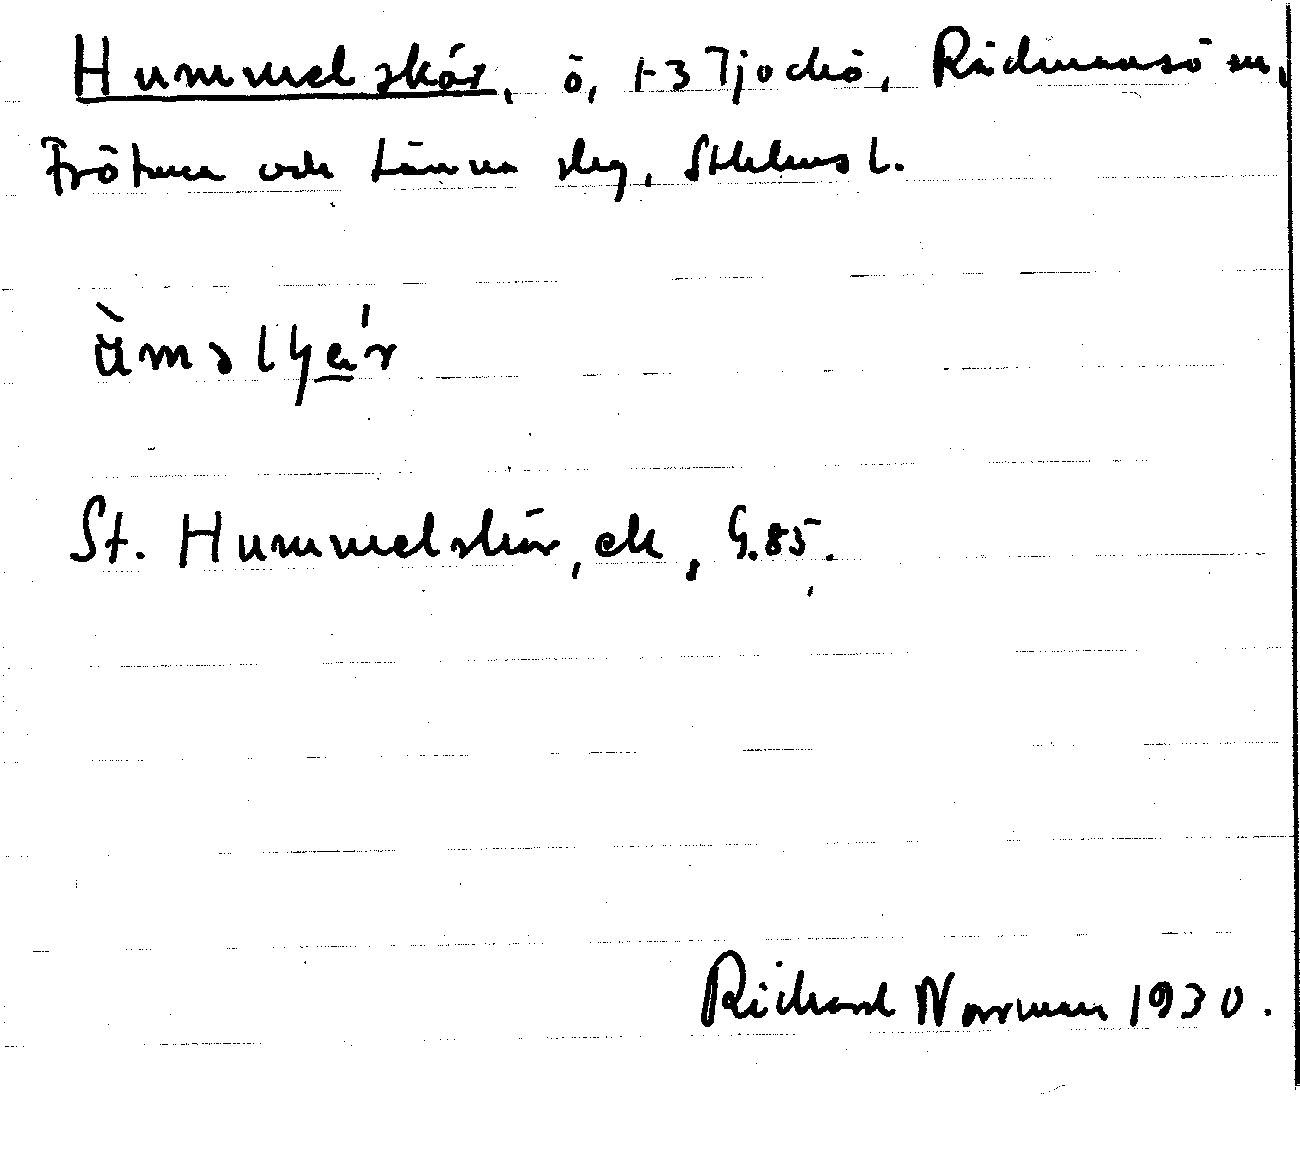 Hummelskär, ö, 1-3 Tjockö, Rådmansö sn,
Frötuna och Länna slg, Sthlms l.
St. Hummelskär, ek, G.85.
Richard Norrman 1930.